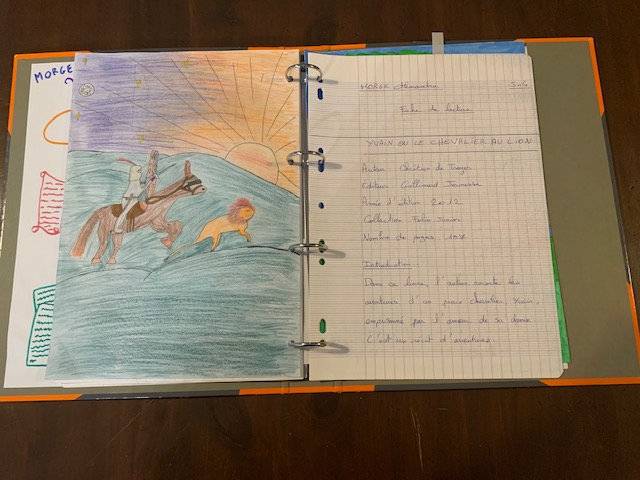 MORGE
MORGE
Fiche de lecture
YVAIN OU LE CHEVALIER AU LION
Auteur Chrétien de Troyes
Editeur Gallimard Jeunesse
Année d'édition 2012
Collection Folio Junior
Nombre de pages
Introduction :
Dans ce livre, l'auteur raconte les
aventures d'un preux chevalier Yvain,
emprisonné par l'amour de sa dame.
C'est un récit d'aventures.